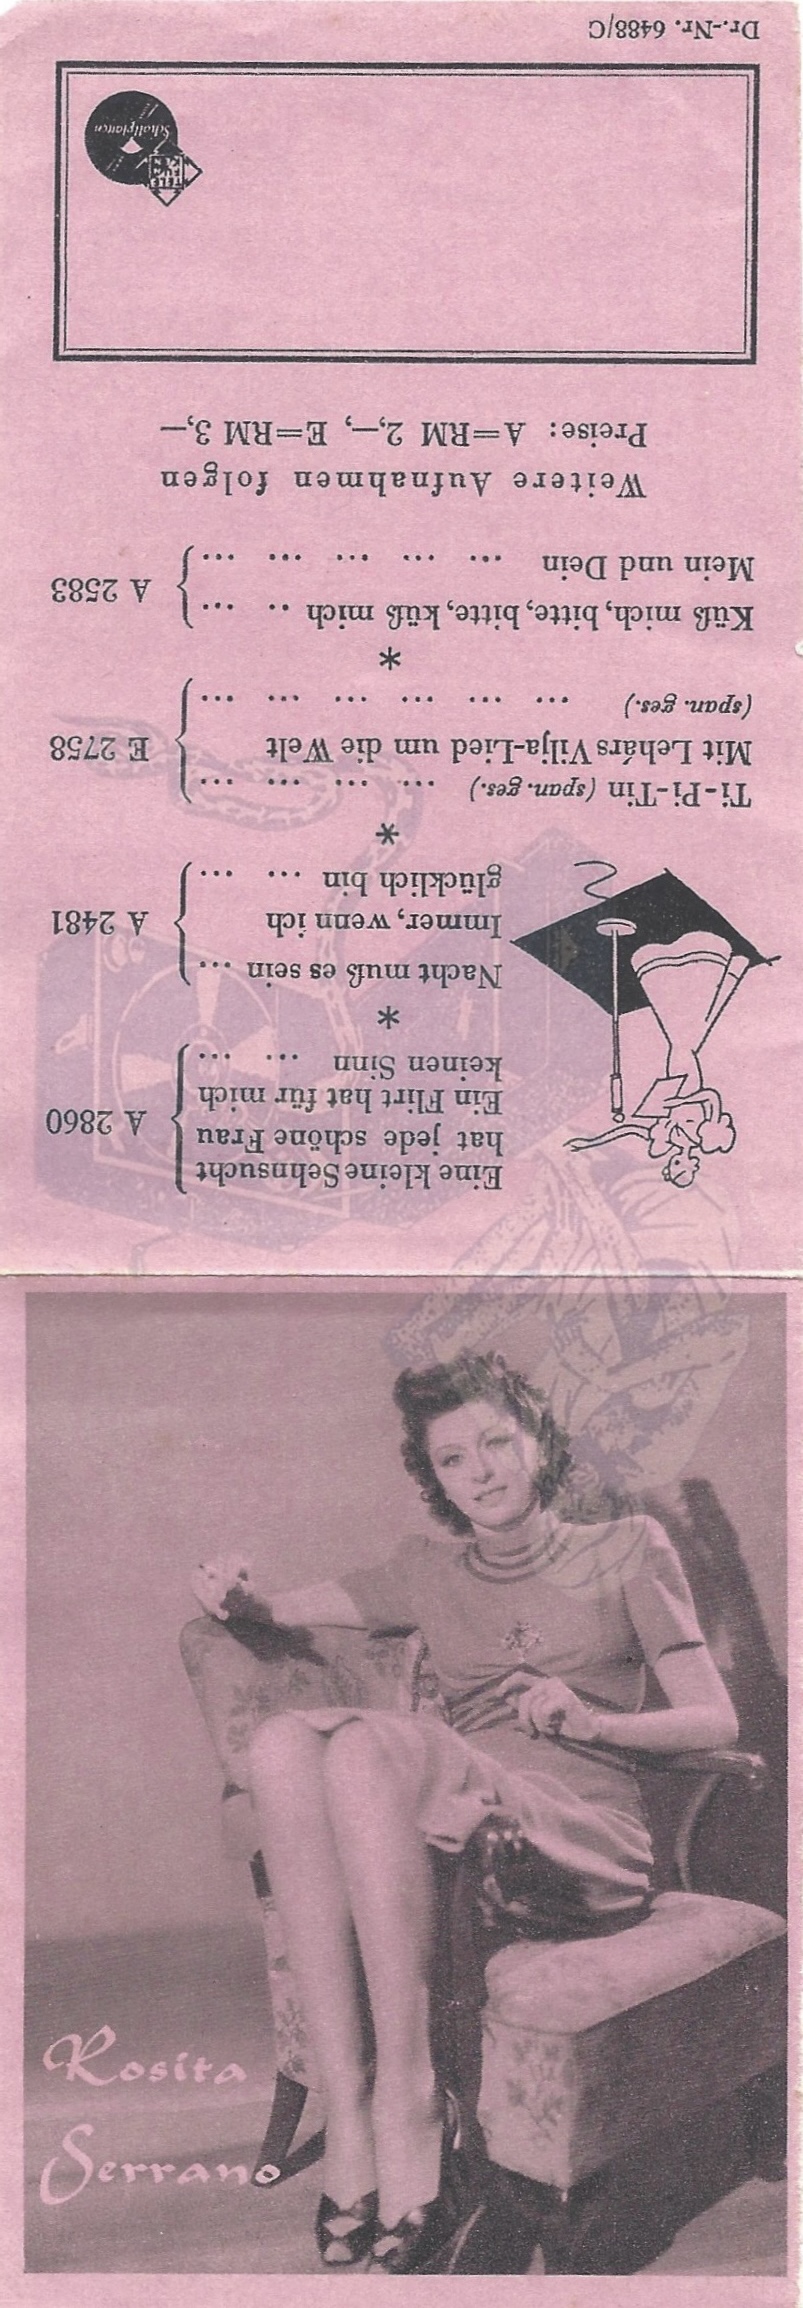 Eine kleine Sehnsucht
hat jede schöne Frau
Ein Flirt hat für mich
keinen Sinn ... ... ...
A 2860
*
Nacht muß es sein ...
Immer, wenn ich
glücklich bin ... ...
A 2481
*
Ti-Pi-Tin (span. ges.) ... ... ... ...
Mit Lehárs Vilja-Lied um die Welt
(span. ges.) ... ... ... ... ... ...
E 2758
*
Küß mich, bitte, bitte, küß mich .. ... ...
Mein und Dein ... ... ... ... ...
A 2583
Weitere Aufnahmen folgen
Preise: A=RM 2,—, E=RM 3,—
TELE
FUN
KEN
Schallplatten
Dr.-Nr. 6488/C
Rosita
Serrano